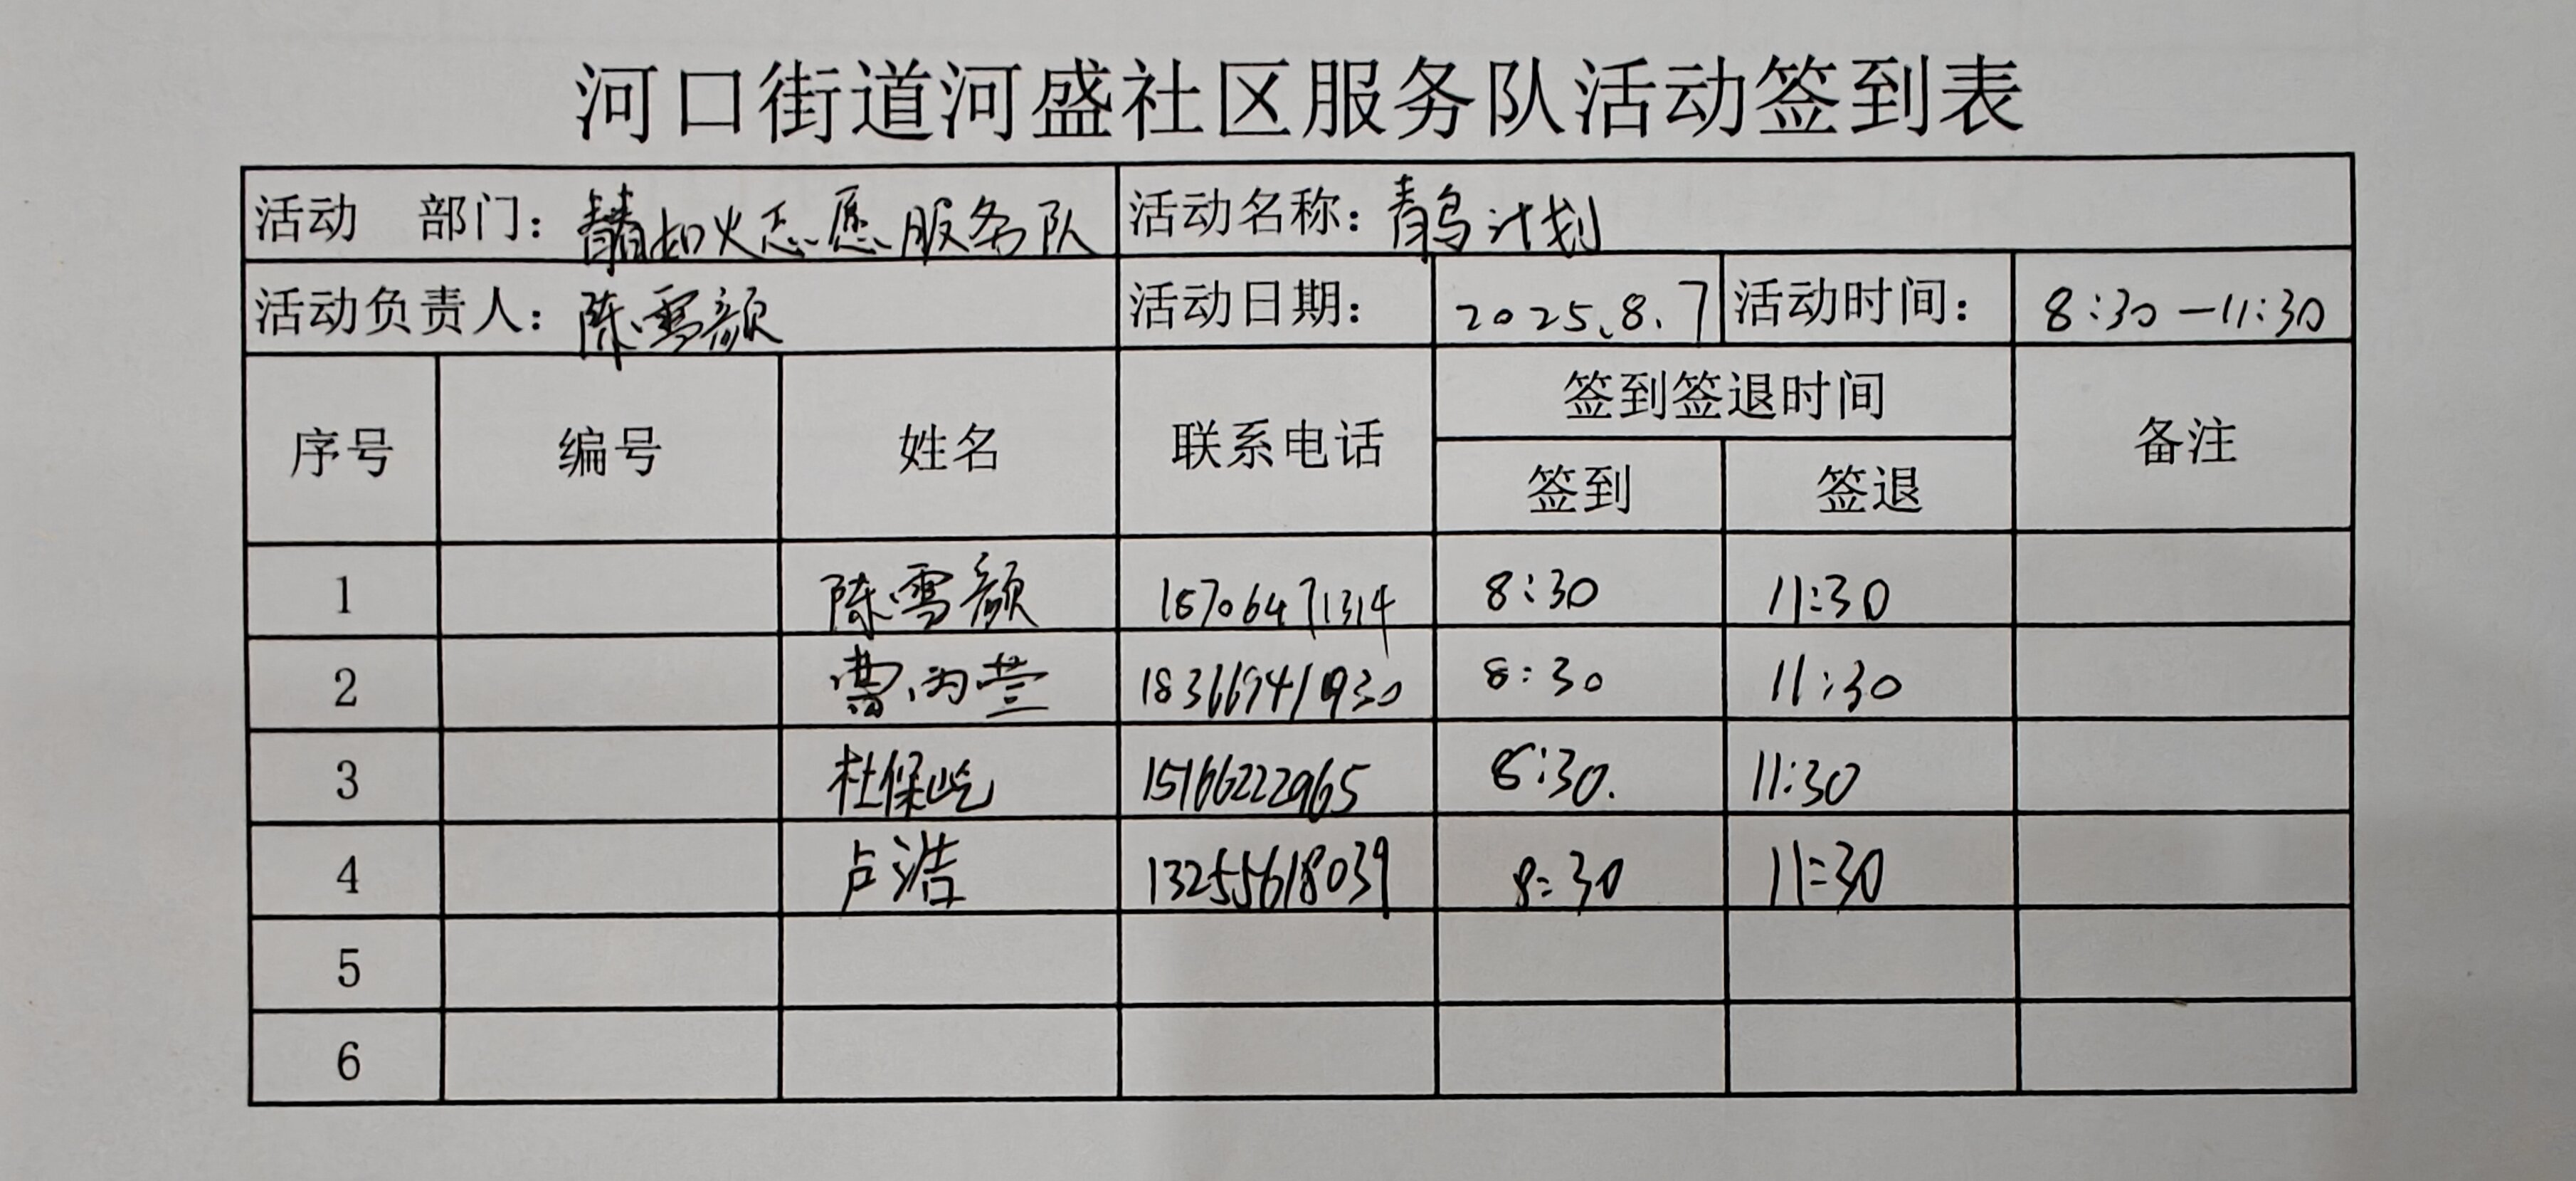 河口街道河盛社区服务队活动签到表
活动 部门: 青春如火志愿服务队 活动名称: 青鸟计划
活动负责人: 陈雪颜 活动日期: 2025.8.7 活动时间: 8:30-11:30
序号 编号 姓名 联系电话 签到签退时间 备注
签到 签退
1 陈雪颜 18706471314 8:30 11:30
2 曹雨萱 18366941930 8:30 11:30
3 杜保屹 15166222965 8:30. 11:30
4 卢浩 13255618039 8:30 11:30
5
6